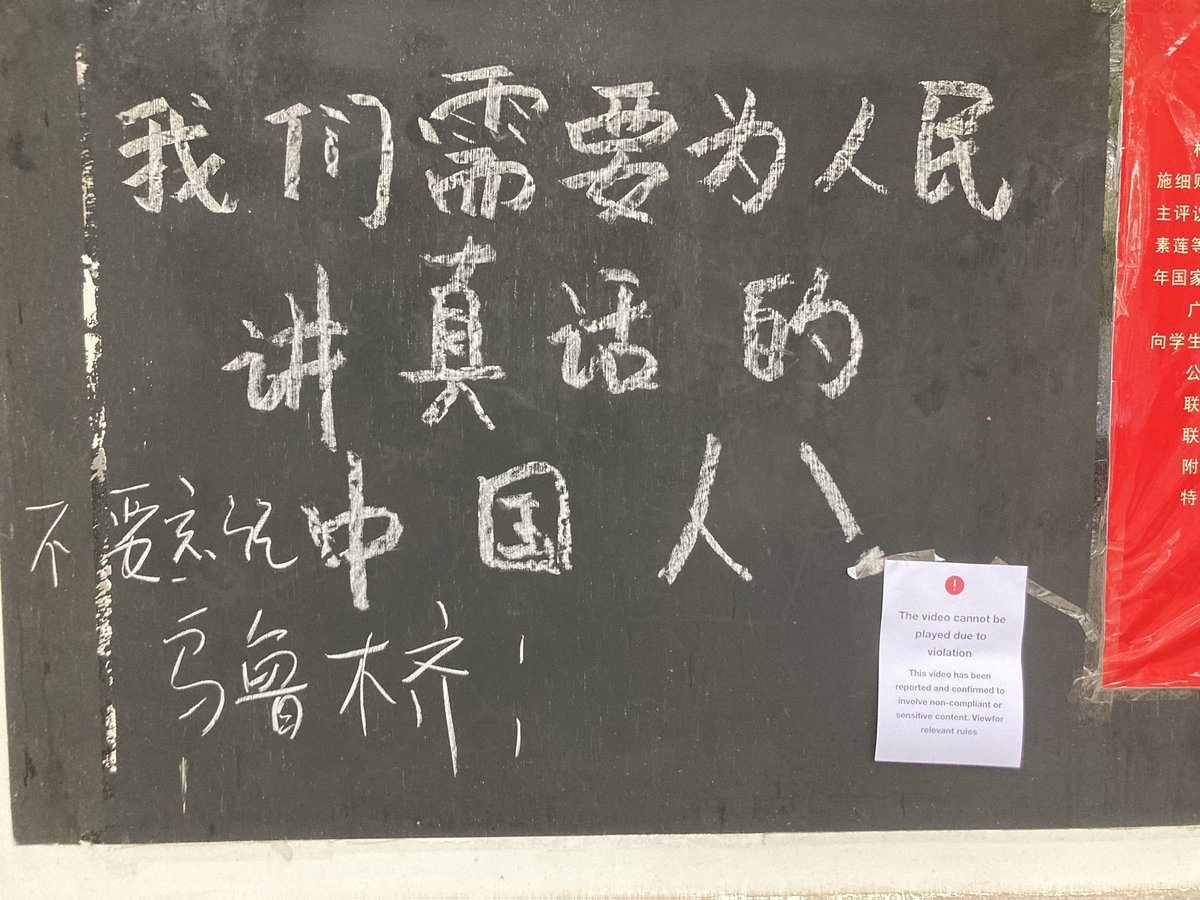 我们需要为人民
讲真话的
中国人！
不要忘记
乌鲁木齐！
The video cannot be
played due to
violation
This video has been
reported and confirmed to
involve non-compliant or
sensitive content. Viewfor
relevant rules
施细则
主评议
素莲等
年国家
广
向学生
公
联
联
附
特